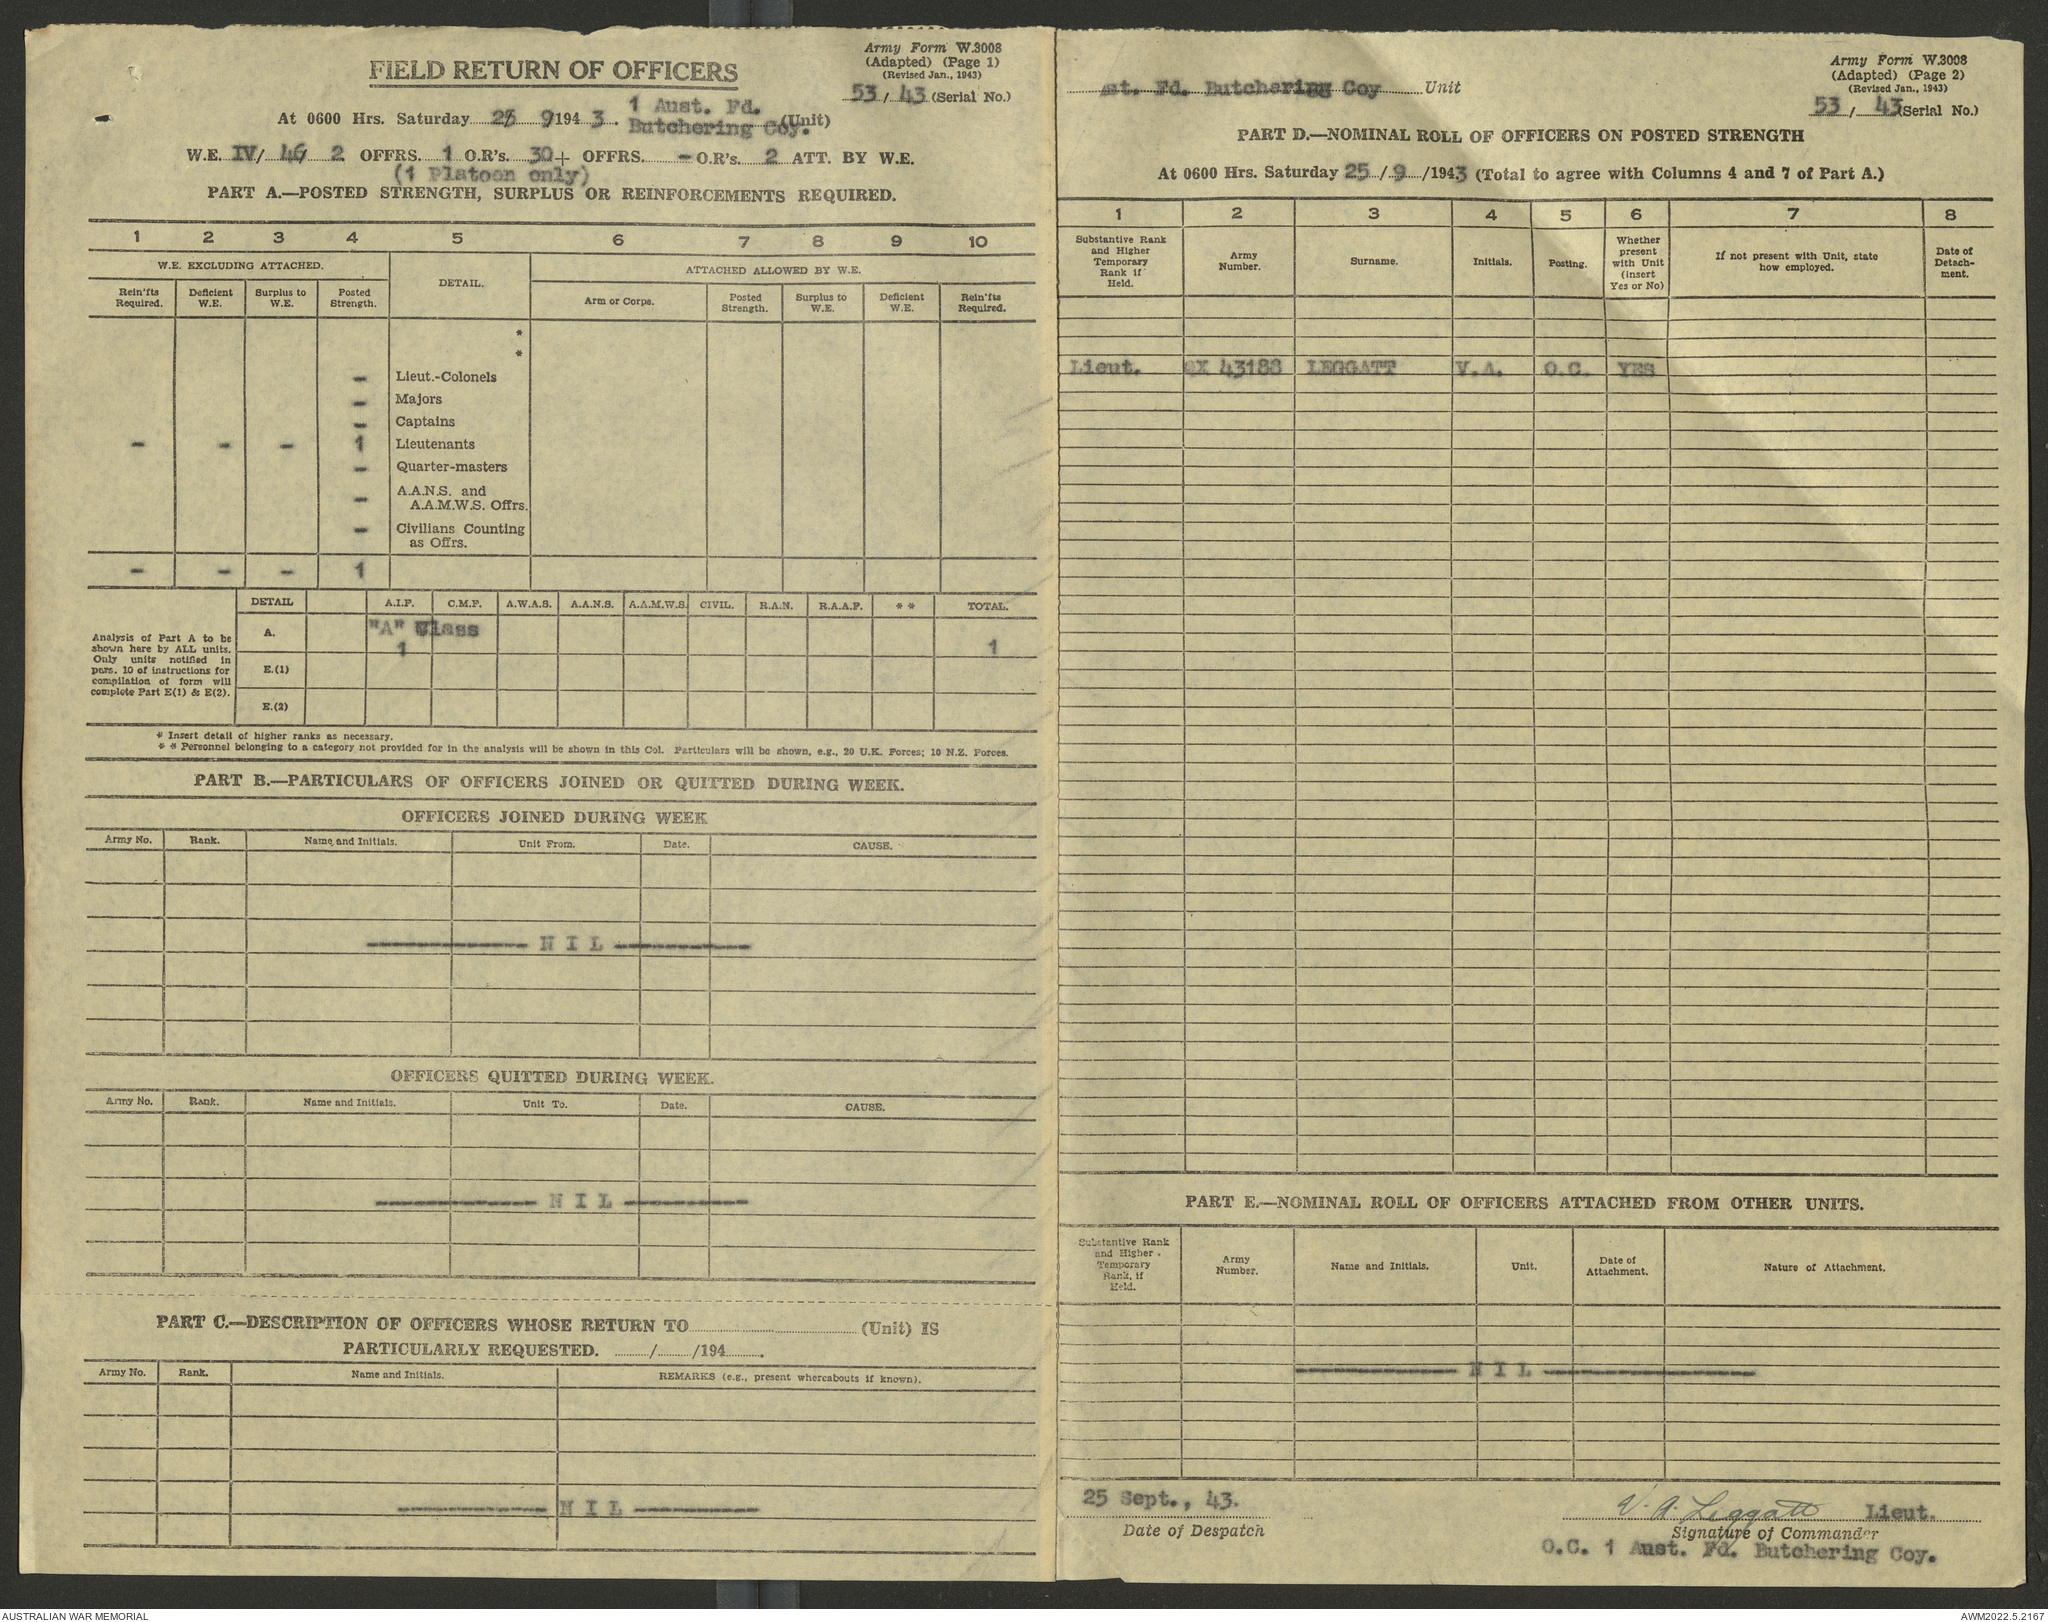 Army Form W.3008
(Adapted) (Page 1)
(Revised Jan., 1943)
FIELD RETURN OF OFFICERS
53 / 43 (Serial No.)
At 0600 Hrs. Saturday 25 9 194 3. 1 Aust. Fd. Butchering Coy. (Unit)
W.E. IV/ 46 2 OFFRS. 1 O.R's. 30 + OFFRS. - O.R's. 2 ATT. BY W.E.
(1 Platoon only)
PART A.—POSTED STRENGTH, SURPLUS OR REINFORCEMENTS REQUIRED.
1 2 3 4 5 6 7 8 9 10
W.E. EXCLUDING ATTACHED. DETAIL. ATTACHED ALLOWED BY W.E.
Rein'fts Required. Deficient W.E. Surplus to W.E. Posted Strength. Arm or Corps. Posted Strength. Surplus to W.E. Deficient W.E. Rein'fts Required.
*
*
- Lieut.-Colonels
- Majors
- Captains
- - - 1 Lieutenants
- Quarter-masters
- A.A.N.S. and A.A.M.W.S. Offrs.
- Civilians Counting as Offrs.
- - - 1
DETAIL A.I.F. C.M.F. A.W.A.S. A.A.N.S. A.A.M.W.S. CIVIL. R.A.N. R.A.A.F. * * TOTAL.
Analysis of Part A to be
shown here by ALL units.
Only units notified in
para. 10 of instructions for
compilation of form will
complete Part E(1) & E(2).
A. "A" Class
1 1
E.(1)
E.(2)
* Insert detail of higher ranks as necessary.
* * Personnel belonging to a category not provided for in the analysis will be shown in this Col. Particulars will be shown, e.g., 20 U.K. Forces; 10 N.Z. Forces.
PART B.—PARTICULARS OF OFFICERS JOINED OR QUITTED DURING WEEK.
OFFICERS JOINED DURING WEEK
Army No. Rank. Name and Initials. Unit From. Date. CAUSE.
NIL
OFFICERS QUITTED DURING WEEK.
Army No. Rank. Name and Initials. Unit To. Date. CAUSE.
NIL
PART C.—DESCRIPTION OF OFFICERS WHOSE RETURN TO (Unit) IS
PARTICULARLY REQUESTED. / /194 .
Army No. Rank. Name and Initials. REMARKS (e.g., present whereabouts if known).
NIL
Army Form W.3008
(Adapted) (Page 2)
(Revised Jan., 1943)
st. Fd. Butchering Coy Unit
53 / 43 (Serial No.)
PART D.—NOMINAL ROLL OF OFFICERS ON POSTED STRENGTH
At 0600 Hrs. Saturday 25 / 9 /1943 (Total to agree with Columns 4 and 7 of Part A.)
1 2 3 4 5 6 7 8
Substantive Rank and Higher Temporary Rank if Held. Army Number. Surname. Initials. Posting. Whether present with Unit (insert Yes or No) If not present with Unit, state how employed. Date of Detachment.
Lieut. QX 43188 LEGGATT V.A. O.C. YES
PART E.—NOMINAL ROLL OF OFFICERS ATTACHED FROM OTHER UNITS.
Substantive Rank and Higher Temporary Rank, if Held. Army Number. Name and Initials. Unit. Date of Attachment. Nature of Attachment.
NIL
25 Sept., 43.
Date of Despatch
V. A. Leggatt Lieut.
Signature of Commander
O.C. 1 Aust. Fd. Butchering Coy.
AUSTRALIAN WAR MEMORIAL
AWM2022.5.2167